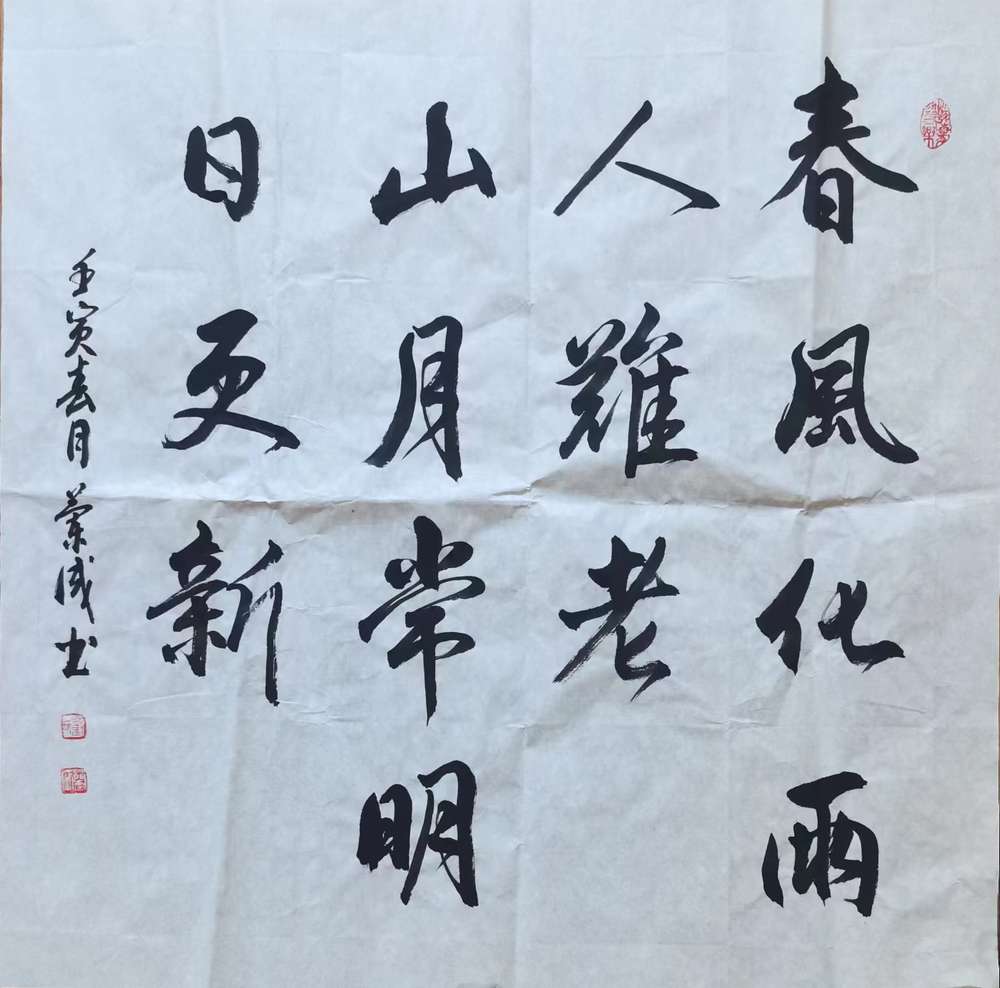 春風化雨
人難老
山月常明
日更新
壬寅春月榮成书